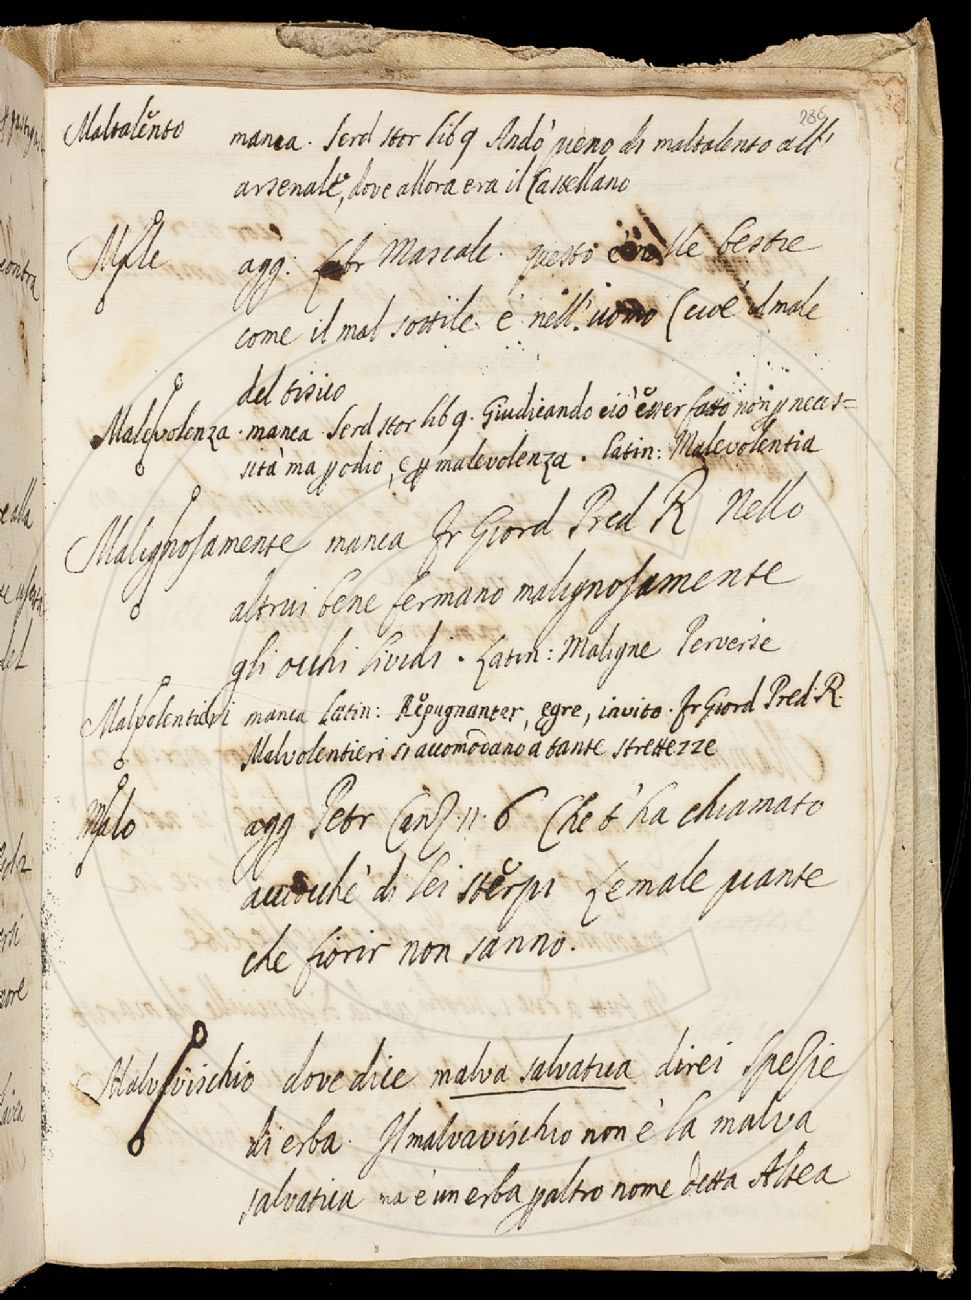 286
Maltalẽnto manca. Serd stor lib 9 Andò pieno di maltalento all'
arsenale, dove allora era il Castellano
Male agg. Libr Mascalc. questo è nelle bestie
come il mal sottile è nell'uomo (cioè il male
del tisico
Malevolenza. manca. Serd stor lib 9. Giudicando ciò ẽsser fatto non p necces=
sità ma p odio, e p malevolenza. Latin: Malevolentia
Malignosamente manca Fr Giord Pred R Nello
altrui bene fermano malignosamente
gli occhi lividi. Latin: Maligne Perverse
Malvolentieri manca Latin: Repugnanter, egre, invito. Fr Giord Pred. R.
Malvolentieri si accomodano a tante strettezze
Malo agg Petr Canz. 11. 6 Che t'ha chiamato
acciochè di lei sterpi Le male piante
che fiorir non sanno.
Malvavischio dove dice malva salvatica direi Spezie
di erba. Il malvavischio non è la malva
salvatica ma è un erba p altro nome detta Altea